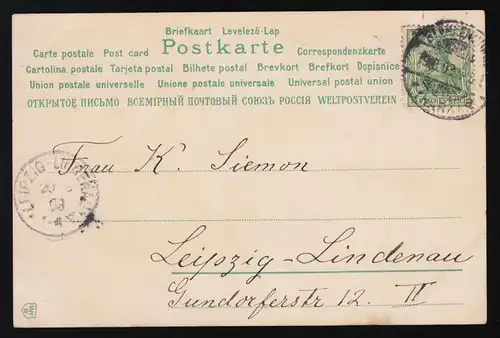 Briefkaart Levelező-Lap
Carte postale Post card Postkarte Correspondenzkarte
Cartolina postale Tarjeta postal Bilhete postal Brevkort Brefkort Dopisnice
Union postale universelle Unione postale universale Universal postal union
ОТКРЫТОЕ ПИСЬМО ВСЕМІРНЫЙ ПОЧТОВЫЙ СОЮЗЪ РОССІЯ WELTPOSTVEREIN
Frau K. Siemon
LEIPZIG-LINDENAU
Leipzig-Lindenau
Gundorferstr 12. II